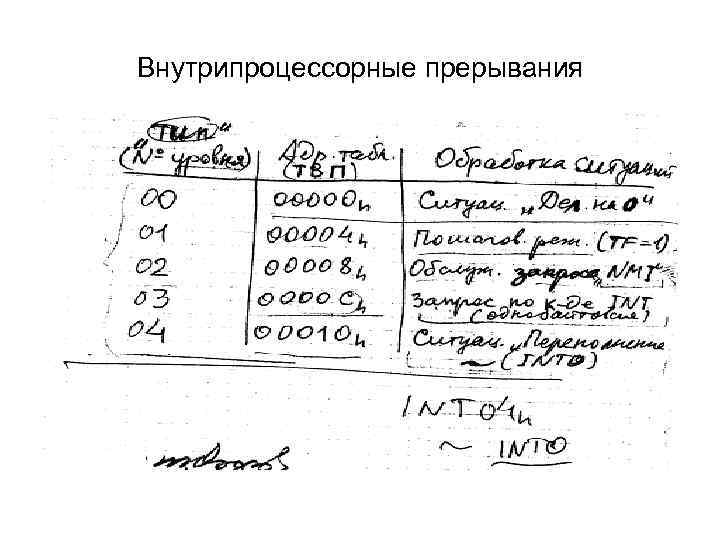 Внутрипроцессорные прерывания
"Тип"
(№ уровня) Адр. табл. (ТВП) Обработка ситуаций
00 00000h Ситуац. „Дел. на 0"
01 00004h Пошагов. реж. (TF=1)
02 00008h Обслуж. запроса "NMI"
03 0000Ch Запрос по к-де INT
(однобайтовые)
04 00010h Ситуац. „Переполнение
~ (INTO)
INT 04h
~ INTO